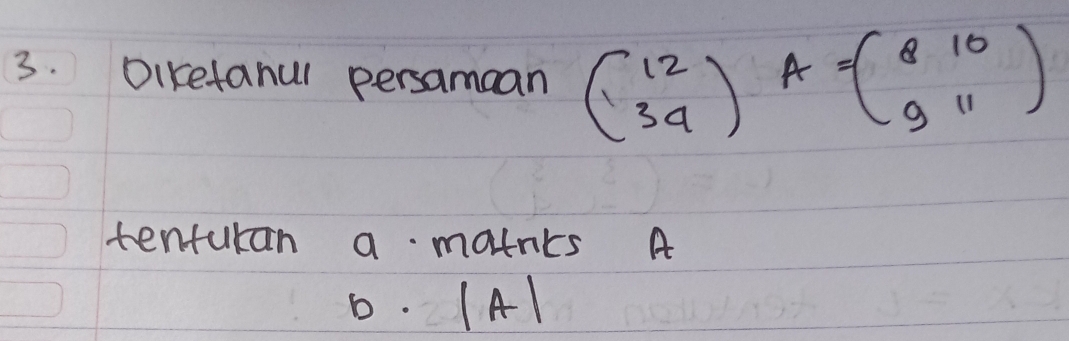 3. Diketahui persamaan (1 2 3 4) A = (8 10 9 11)
tentukan a. matriks A
b. |A|